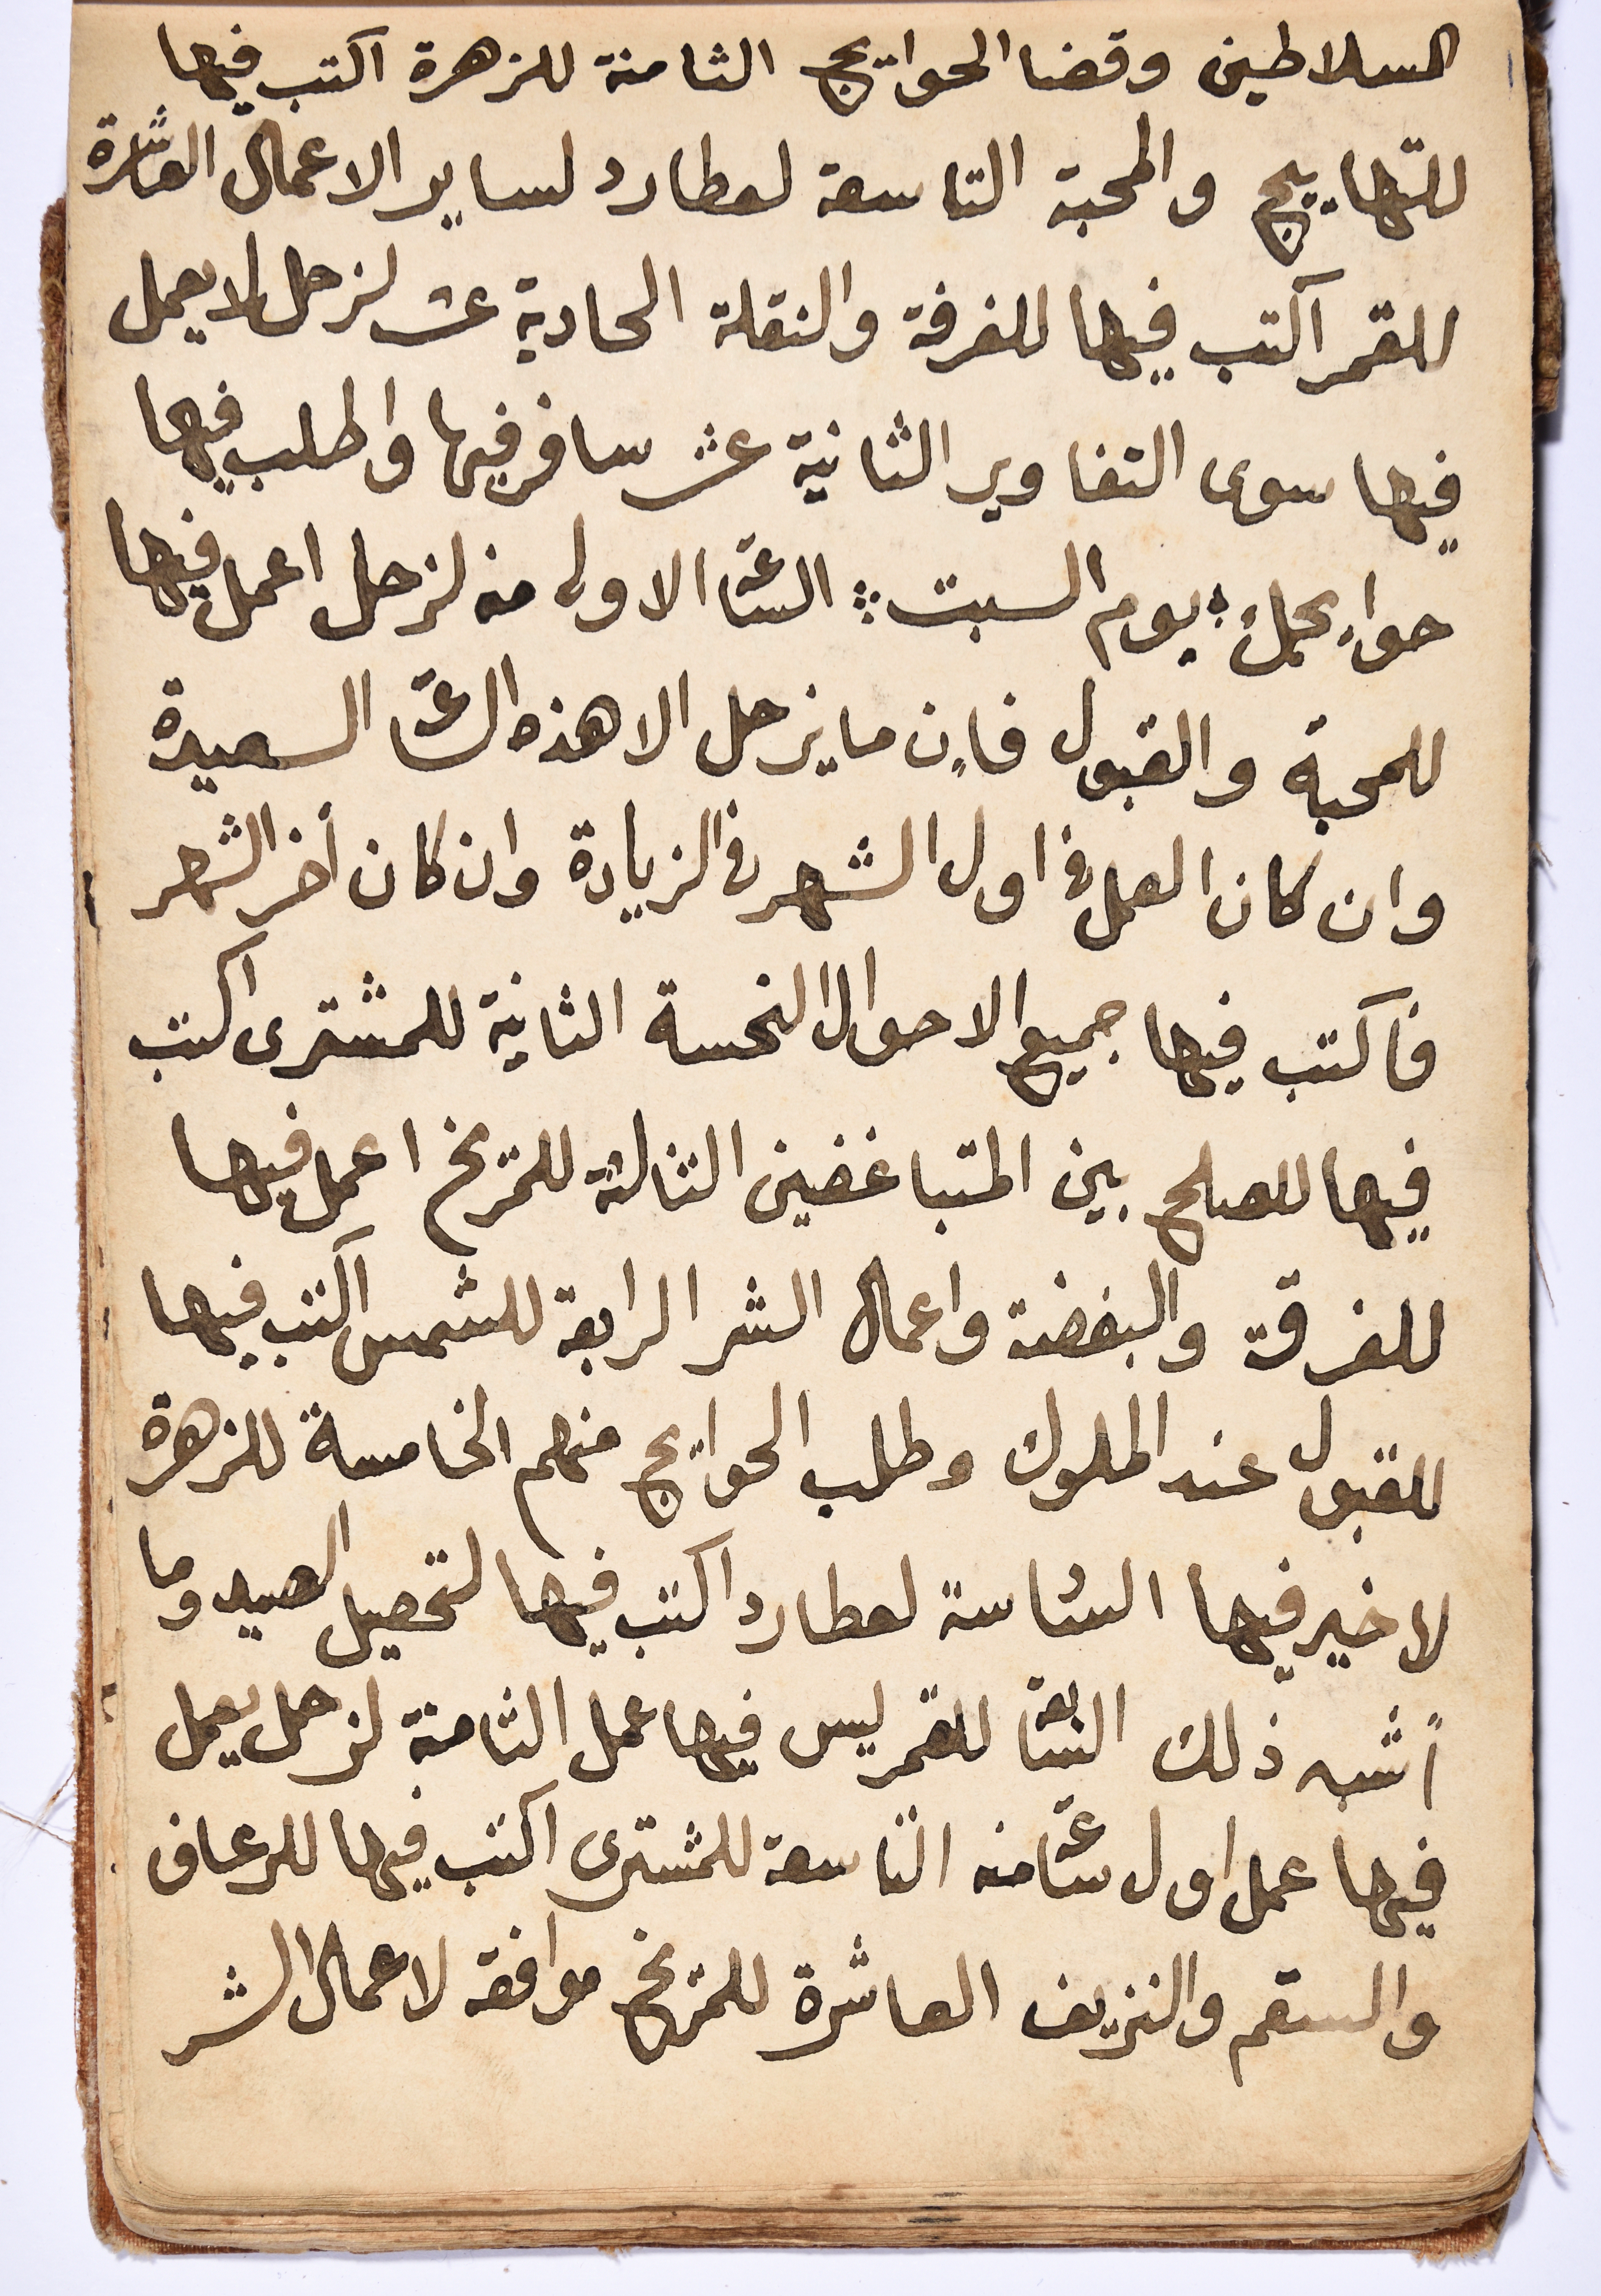 السلاطين وقضا الحوايج الثامنة للزهرة اكتب فيها
للتهاييج والمحبة التاسعة لعطارد لساير الاعمال العاشرة
للقمر اكتب فيها للفرقة والنقلة الحادية عشر لزحل لا يعمل
فيها سوى التغاوير الثانية عشر سافر فيها واطلب فيها
حوايجك يوم السبت الساعة الاولى منه لزحل اعمل فيها
للمحبة والقبول فاٍن ما لزحل الا هذه الساعة السعيدة
وان كان العمل في اول الشهر في الزيادة وان كان أخر الشهر
فاكتب فيها جميع الاحوال النحسة الثانية للمشترى اكتب
فيها للصلح بين المتباغضين الثالثة للمريخ اعمل فيها
للفرقة والبغضة واعمال الشر الرابعة للشمس اكتب فيها
للقبول عند الملوك وطلب الحوايج منهم الخامسة للزهرة
لا خير فيها السادسة لعطارد اكتب فيها لتحصيل الصيد وما
اشبه ذلك السابعة للقمر ليس فيها عمل الثامنة لزحل يعمل
فيها عمل اول ساعة منه التاسعة للمشترى اكتب فيها للرعاف
والسقم والنزيف العاشرة للمريخ موافقه لاعمال الشر